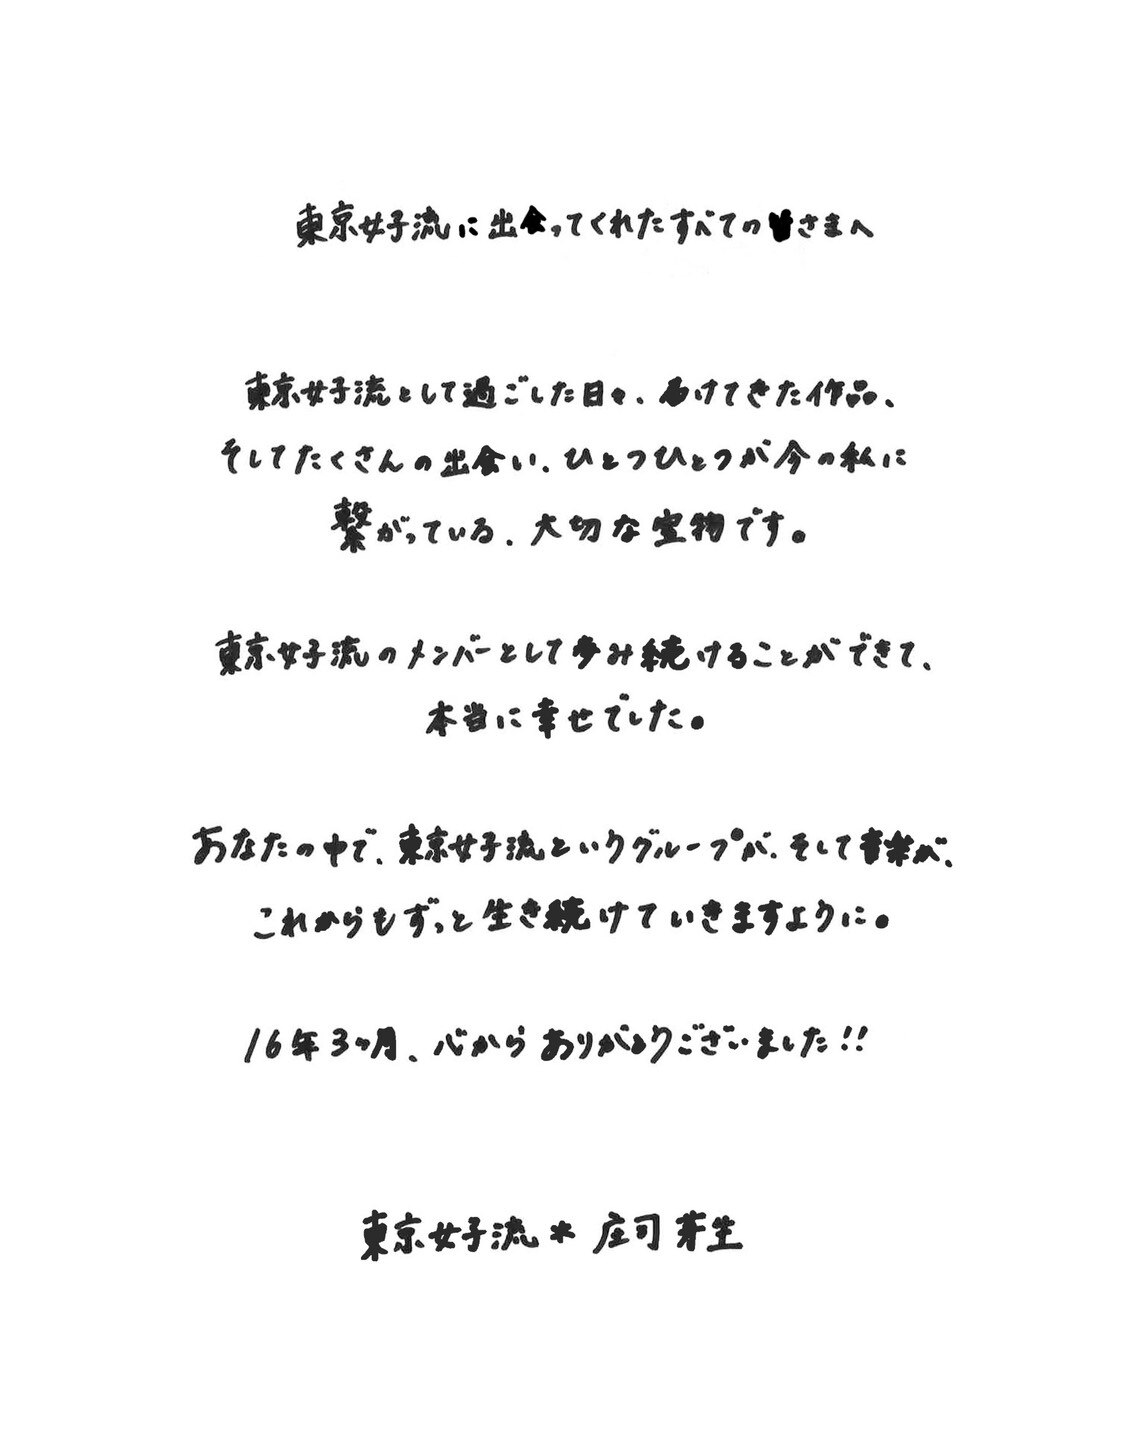 東京女子流に出会ってくれたすべての皆さまへ
東京女子流として過ごした日々、届けてきた作品、
そしてたくさんの出会い、ひとつひとつが今の私に
繋がっている、大切な宝物です。
東京女子流のメンバーとして歩み続けることができて、
本当に幸せでした。
あなたの中で、東京女子流というグループが、そして音楽が、
これからもずっと生き続けていきますように。
16年3ヶ月、心からありがとうございました!!
東京女子流*庄司芽生